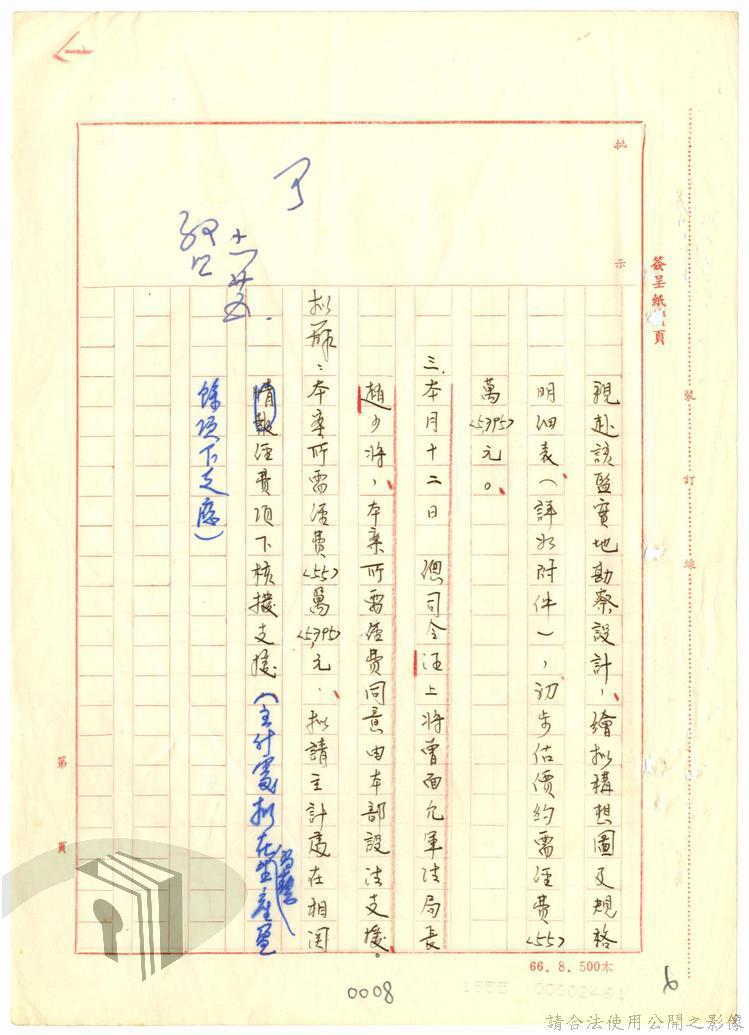 批示
簽呈紙 頁
裝訂線
親赴該監實地勘察設計，繪擬構想圖及規格
明細表（詳如附件一），初步估價約需經費<55>
萬<5395>元。
三、本月十二日 總司令汪上將曾面允軍法局長
趙少將，本案所需經費同意由本部設法支援。
擬辦：本案所需經費<55>萬<5395>元，擬請主計處在相關
情報經費項下核撥支援（主計處擬在生產盈
餘項下支應）
第 頁
66.8.500本
0008
1555 00002461
6
請合法使用公開之影像